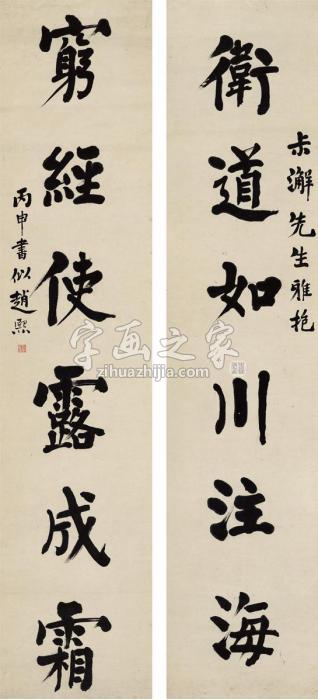 衛道如川注海
尗澥先生雅挹
窮經使露成霜
丙申書似趙熙
字画之家
zihuazhijia.com